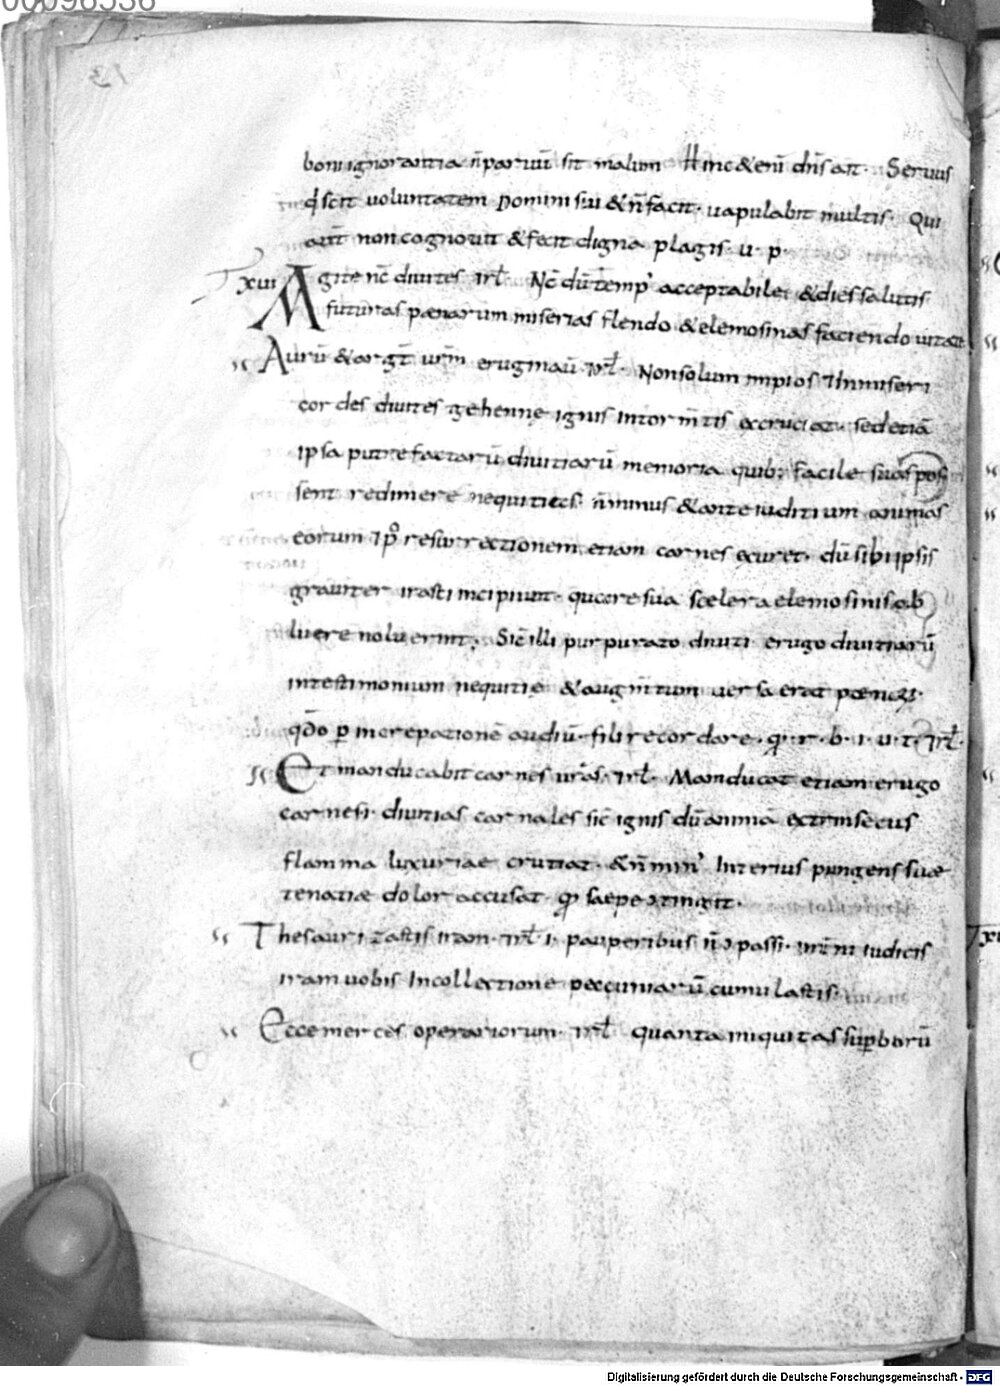 boni ignorantia n̄ paruū sit malum Hinc & enī dn̄s ait. Seruus
q̄ scit uoluntatem Domini sui & n̄ facit. uapulabit multis. Qui
aūt non cognouit & fecit digna plagis. u. p.
xiii Agite nc̄ diuites irl̄. Nc̄ dū temp' acceptabile. & dies salutis
futuras pænarum miserias flendo & elemosinas faciendo uitate
Aurū & argt̄ ur̄m eruginau̅ irl̄. Non solum impios & inmiseri
cordes diuites gehennę ignis in tormtis excruciat. sed etiā
ipsa putrefactarū diuitiarū memoria quib; facile suas pos
sent redimere nequitias. n̄ minus & ante iuditium animas
eorum & p̄ resurrectionem etiam carnes exuret. dū sibi ipsis
grauiter irasci incipiunt. quare sua scelera elemosinis ab
luere noluerint. Sic̄ illi purpurato diuiti erugo diuitiarū
in testimonium nequitię & augm̄tum uersa erat poenarum.
qdo p increpationē audiū. fili recordare. q. r. b. i. u. t. irl̄.
Et manducabit carnes ur̄as. irl̄. Manducat etiam erugo
carnes. i. diuitias carnales sic̄ ignis dū animā extrinsecus
flamma luxuriae crutiat. & n̄ min' Interius pungens suae
tenatiæ dolor accusat. q saepe  tingit.
Thesaurizastis iram. irl̄ i. pauperibus n̄  passi. iudicis
iram uobis In collectione pecuniarū cumulastis.
Ecce merces operariorum. irl̄ quanta iniquitas supborū
13
00096536
Digitalisierung gefördert durch die Deutsche Forschungsgemeinschaft - DFG